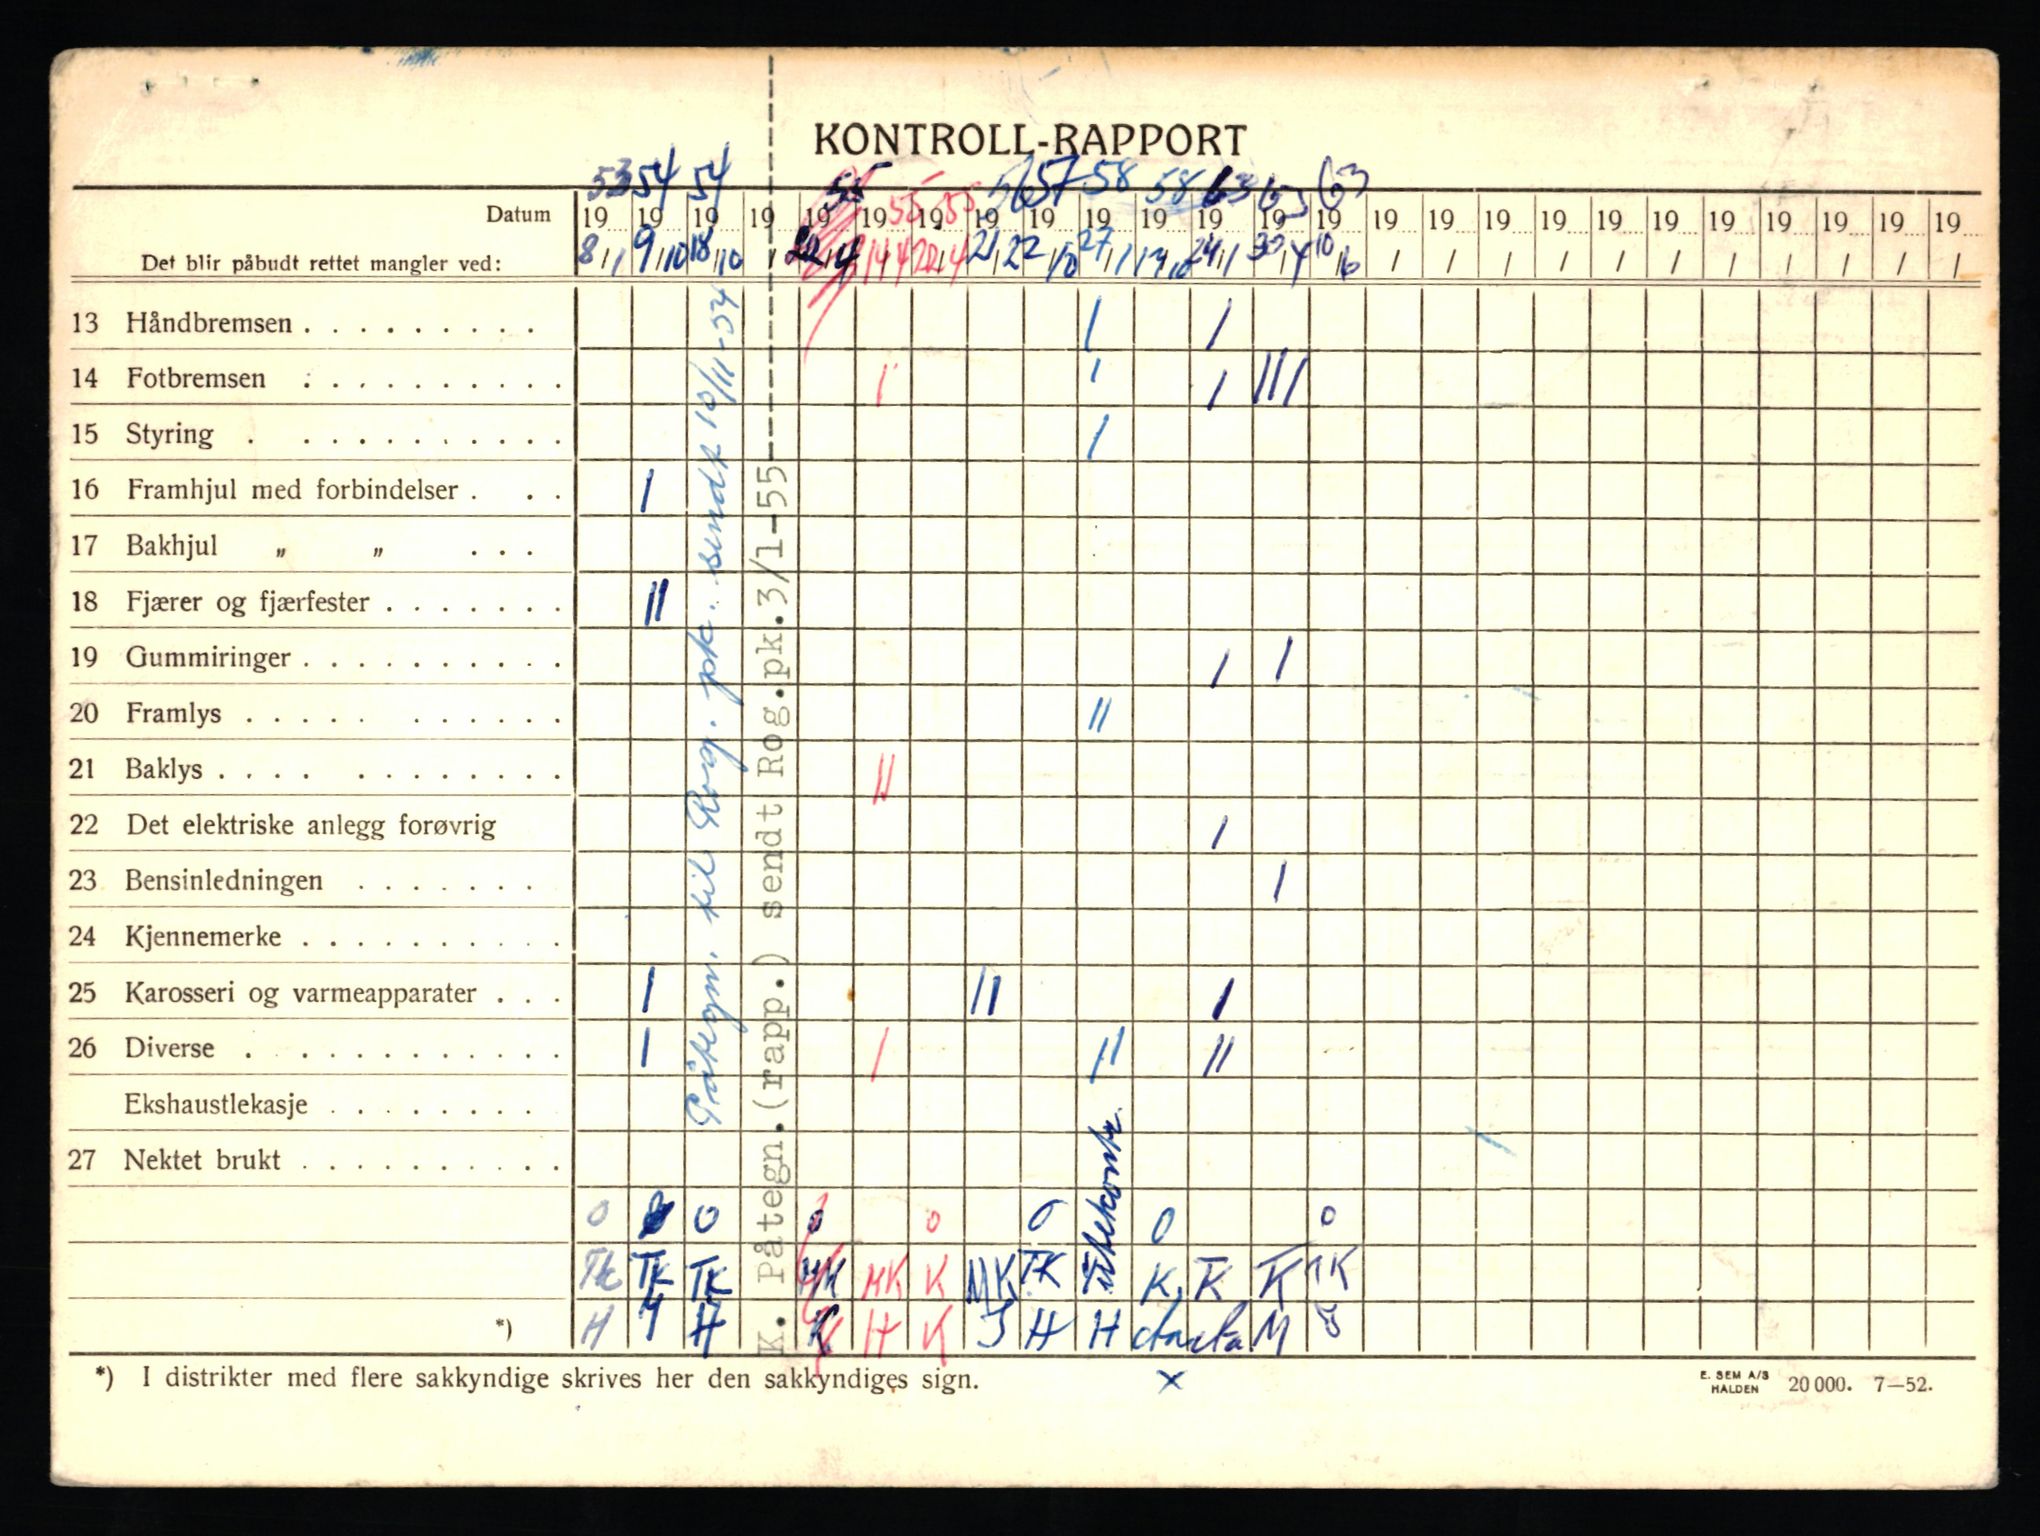 KONTROLL-RAPPORT
53 54 54 55 55 55 56 57 58 58 63 63 63
Datum 19 19 19 19 19 19 19 19 19 19 19 19 19 19 19 19 19 19 19 19 19 19 19 19 19
Det blir påbudt rettet mangler ved: 8/1 9/10 18/10 / 22/4 14/4 22/4 21/2 22/10 27/1 24/1 30/4 10/6 / / / / / / / / / / /
13 Håndbremsen . . . . . . . . . / /
14 Fotbremsen . . . . . . . . . . / / / ///
15 Styring . . . . . . . . . . . /
16 Framhjul med forbindelser . . . /
17 Bakhjul „ „ . . .
18 Fjærer og fjærfester . . . . . . . //
19 Gummiringer . . . . . . . . . . / /
20 Framlys . . . . . . . . . . . //
21 Baklys . . . . . . . . . . . . //
22 Det elektriske anlegg forøvrig /
23 Bensinledningen . . . . . . . /
24 Kjennemerke . . . . . . . . . .
25 Karosseri og varmeapparater . . . / // /
26 Diverse . . . . . . . . . . . / / // //
Ekshaustlekasje . . . . . . . .
27 Nektet brukt . . . . . . . . . .
Påtegn. til Rog. pk. sendt 10/11-54
K. Påtegn.(rapp.) sendt Rog.pk.3/1-55
0 0 0 0 0 0 0
TK TK TK MK MK K MK TK K K K TK
*) H H K H K H H M
*) I distrikter med flere sakkyndige skrives her den sakkyndiges sign.
x
E. SEM A/S
HALDEN 20 000. 7—52.